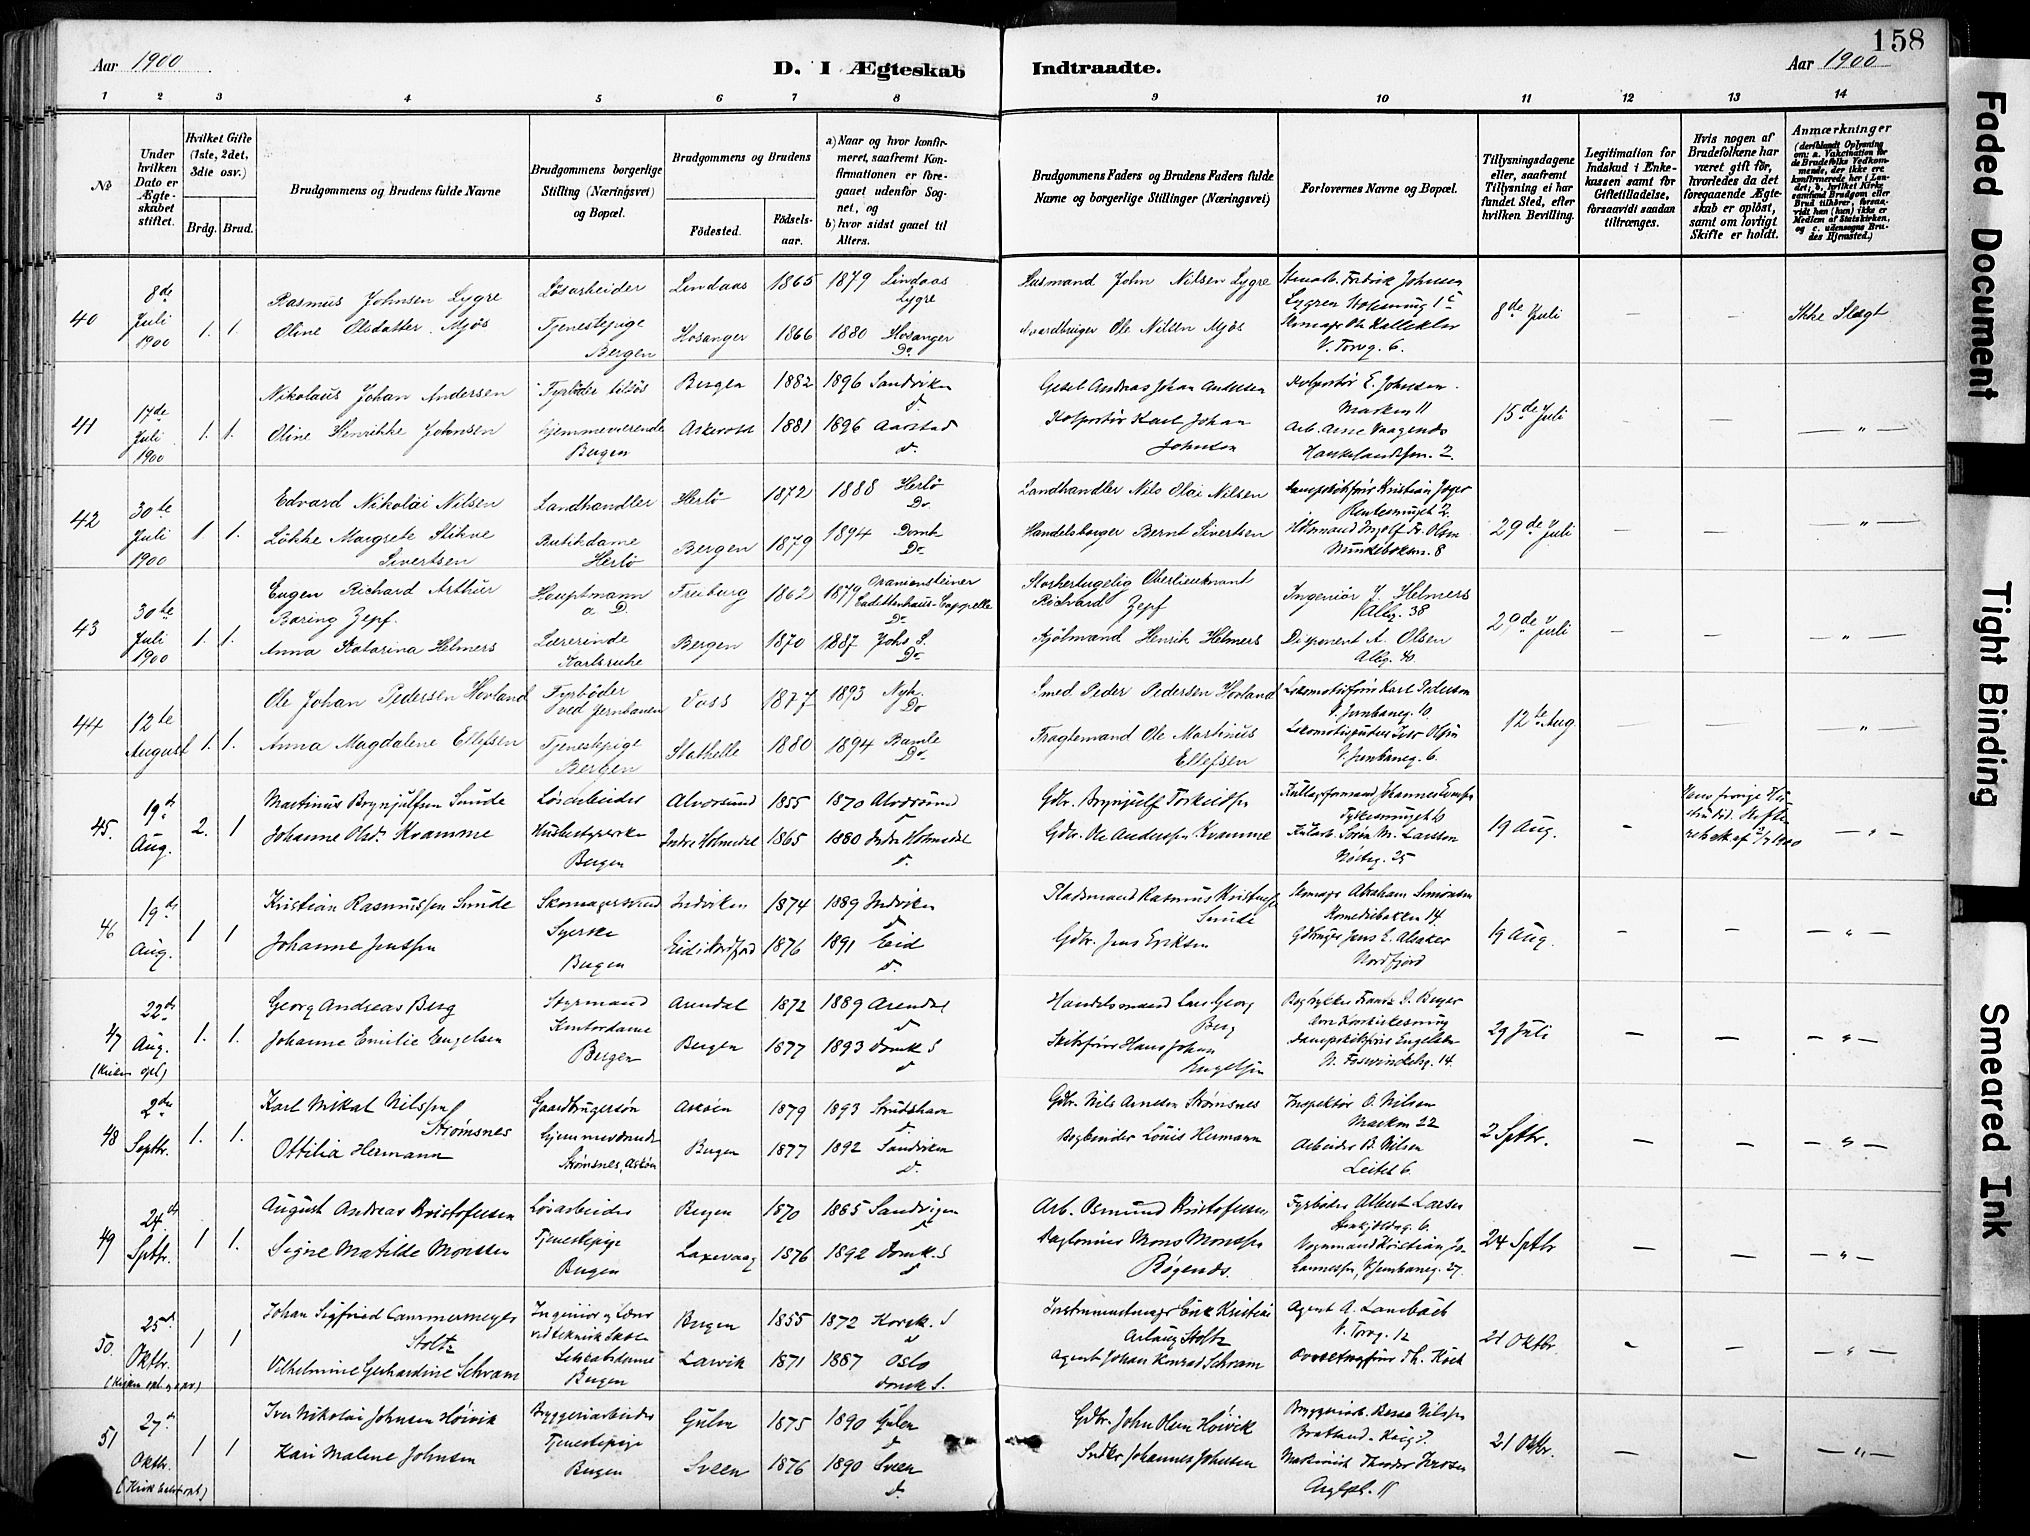 158
Aar 1900
D. I Ægteskab Indtraadte.
Aar 1900
1 2 3 4 5 6 7 8 9 10 11 12 13 14
No
Under hvilken Dato er Ægteskabet stiftet.
Hvilket Gifte (1ste, 2det, 3die osv.)
Brdg. Brud.
Brudgommens og Brudens fulde Navne
Brudgommens borgerlige Stilling (Næringsvei) og Bopæl.
Brudgommens og Brudens
Födested.
Födselsaar.
a) Naar og hvor konfirmeret, saafremt Konfirmationen er foregaaet udenfor Sognet, og
b) hvor sidst gaaet til Alters.
Brudgommens Faders og Brudens Faders fulde Navne og borgerlige Stillinger (Næringsvei)
Forlovernes Navne og Bopæl.
Tillysningsdagene eller, saafremt Tillysning ei har fundet Sted, efter hvilken Bevilling.
Legitimation for Indskud i Enkekassen samt for Giftetilladelse, forsaavidt saadan tiltrænges.
Hvis nogen af Brudefolkene har været gift för, hvorledes da det foregaaende Ægteskab er oplöst, samt om lovligt Skifte er holdt.
Anmærkninger
(deriblandt Oplysning om: a. Vakcination for de Brudefolks Vedkommende, der ikke ere konfirmerede her i Landet; b. hvilket Kirkesamfund Brudgom eller Brud tilhörer, forsaavidt han (hun) ikke er Medlem af Statskirken, og c. udensogns Brudes Hjemsted.)
40 8de Juli 1900 1. 1.
Rasmus Johnsen Lygre Løsarbeider Lindaas 1865 1879 Lindaas Lygre
John Nilsen Lygre
Fredrik Johnsen
Oline Olsdatter Mjøs Tjenestepige Bergen Hosanger 1866 1880 Hosanger Do
Gaardbruger Ole Nilsen Mjøs
V. Torvg. 6.
8de Juli — — Ikke Slegt
41 17de Juli 1900 1. 1.
Nikolaus Johan Andersen Fyrbøder tilsøs Bergen 1882 1896 Sandviken d.
Andreas Johan Andersen
Kolportør E. Johnsen Marken 11
Oline Henrikke Johnsen hjemmeværende Bergen Askevold 1881 1896 Aarstad d.
Kolportør Karl Johan Johnsen
Arb. Arne Vaagenes
15de Juli — — — „ —
42 30te Juli 1900 1 1.
Edvard Nikolai Nilsen Landhandler Herlø 1872 1888 Herlø Do
Landhandler Nils Olai Nilsen
Kristian Jæger
Løkke Margrete Stihve Sivertsen Butikdame Herlø Bergen 1879 1894 Domk Do
Handelsborger Bernt Sivertsen
29de Juli — — „ —
43 30te Juli 1900 1. 1.
Eugen Richard Arthur Baring Zepf. Hauptmann a D. Freiburg 1862 1879 Oraniensteiner Cadettenhaus-Cappelle Do
Storhertugelig Oberlieutnant Richard Zepf
Ingeniør J. Helmers Allg. 38
Anna Katarina Helmers Lærerinde Karlsruhe Bergen 1870 1887 Johs. S. Do
Kjølmand Henrik Helmers
Disponent A. Olsen Allg. 40.
29de Juli — — — „ —
44 12te August 1. 1.
Ole Johan Pedersen Hovland Fyrbøder ved Jernbanen Voss 1877 1893 Nyk. Do
Smed Peder Pedersen Hovland
Lokomotivfører Karl Pederson V. Jernbaneg. 10
Anna Magdalene Ellefsen Tjenestepige Bergen Stathelle 1880 1894 Bamle Do
Fragtemand Ole Martinus Ellefsen
V. Jernbaneg. 6.
12te Aug — — „ —
45. 19de Aug. 2. 1
Martinus Brynjulfsen Sunde Løsarbeider Alversund 1855 1870 Alversund d
Gdbr. Brynjulf Torkeldsen
Johanne Olsdr. Kvamme Bergen Indre Holmedal 1865 1880 Indre Holmedal d.
Gdbr. Ole Anderssen Kvamme
Søren M. Larssen Nøsteg. 25
19 Aug. — — „ —
46 19de Aug. 1 1
Kristian Rasmussen Sunde Skomagersvend Indviken 1874 1889 Indviken d
Pladsmand Rasmus Kristensen Sunde
Skomager Abraham Simonsen Komediebakken 14.
Johanne Jenssen Syerske Bergen Eid i Nordfjord 1876 1891 Eid d.
Gdbr. Jens Eriksen
Gdbruger Jens E. Alsaker Nordfjord
19 Aug. — — — „ —
47 22de Aug. 1. 1.
Georg Andreas Berg Styrmand Arendal 1872 1889 Arendal d
Handelsmand Lars Georg Berg
Johanne Emilie Engelsen Kontordame Bergen Bergen 1877 1893 Domk S d
Skibsfører Hans Johan Engelsen
Dampskibsfører Engelsen
29 Juli — — — „ —
48 2den Septbr. 1. 1.
Karl Mikal Nilssen Strømsnes Gaardbrugersøn Askøen 1879 1893 Strudshavn d
Gdbr. Nils Arnesen Strømsnes
Inspektør O. Nilsen Marken 22
Ottilia Hermann Hjemmeværende Strømsnes, Askøen Bergen 1877 1892 Sandviken d.
Bogbinder Louis Hermann
Arbeider B. Nilsen Leitet 6.
2 Septbr. — — — „ —
49 24de Septbr. 1 1.
August Andreas Kristofersen Løsarbeider Bergen 1870 1885 Sandvigen d
Arb. Osmund Kristofersen
Fyrbøder Albert Larsen
Signe Matilde Monssen Tjenestepige Bergen Laxevaag 1876 1892 Domk. S d
Daglønner Mons Monssen Røgenes.
Vognmand Kristian Johannessen, V. Jernbaneg. 27.
24 Septbr — — — „ —
50. 25de Oktbr. 1 1
Johan Sigfried Cammermeyer Stoltz Ingeniør og Lærer ved teknisk Skole Bergen 1855 1872 Korsk. S d
Instrumentmager Erik Kristian Stoltz
Agent A. Lambach V. Torvg. 12
Vilhelmine Gerhardine Schram Selskabsdame Bergen Larvik 1871 1887 Oslo Domk S.
Agent Johan Konrad Schram
Th. Koch
21 Oktbr. — — — „ —
51 27de Oktbr. 1 1
Iver Nikolai Johnsen Høivik Bryggeriarbeider Gulen 1875 1890 Gulen d
Gdbr. John Olsen Høivik
Bryggeriarb. Nilssen
Kari Malene Johnsen Tjenestepige Bergen Sveen 1876 1890 Sveen d.
Snedker Johannes Johnsen
Theodor Iversen
21 Oktbr. — — — „ —
Faded Document
Tight Binding
Smeared Ink